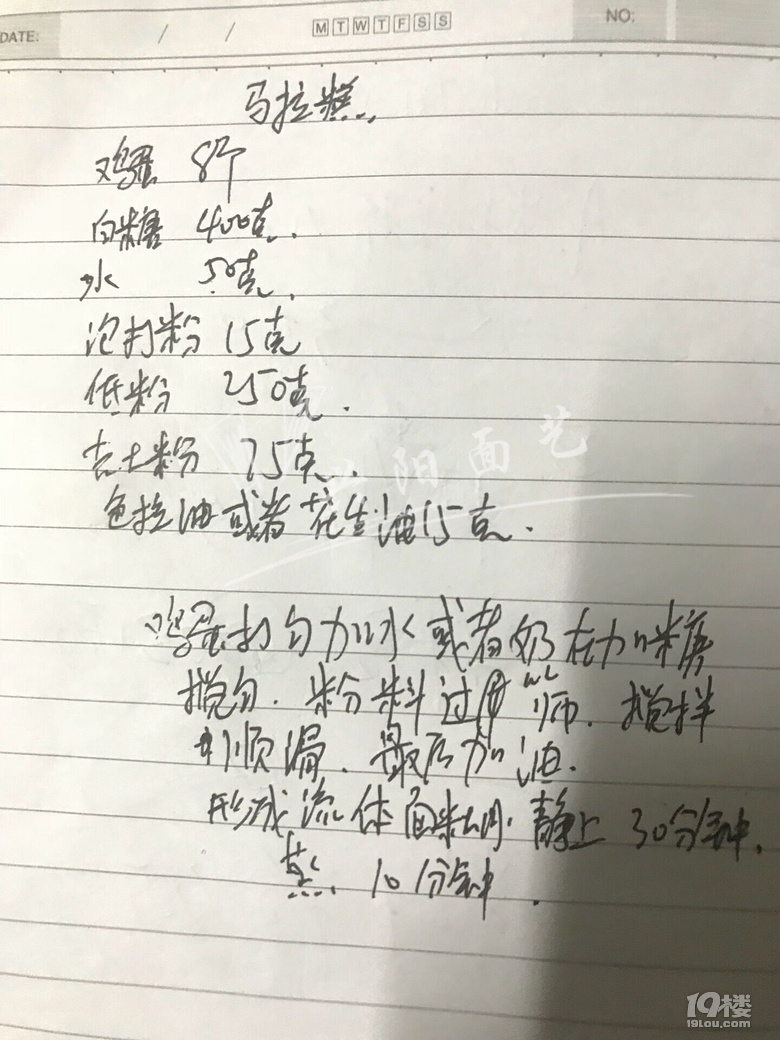 DATE: / / M T W T F S S NO:
马拉糕
鸡蛋 8个
白糖 400克.
水 50克.
泡打粉 15克
低粉 250克.
吉士粉 75克.
阳面艺
色拉油或者花生油15克.
鸡蛋打匀加水或者奶在加糖
搅匀. 粉料过筛. 搅拌
到顺滑. 最后加油.
形成流体面糊. 静上 30分钟.
蒸. 10分钟.
19楼
19lou.com